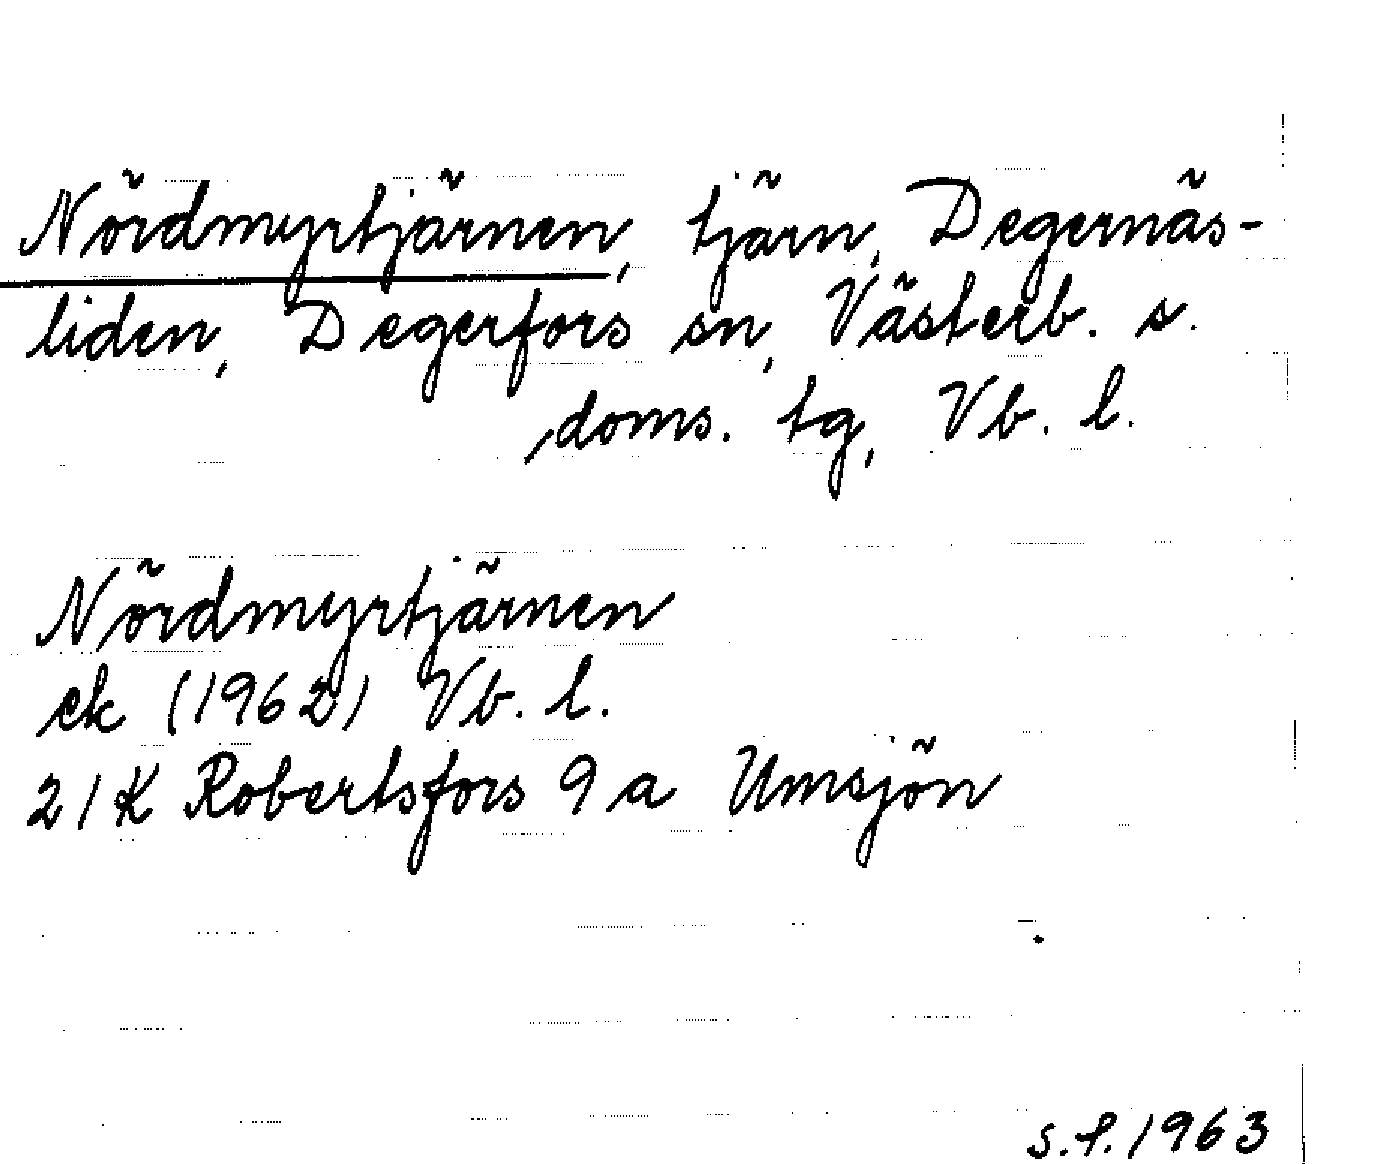 Nördmyrtjärnen, tjärn, Degernäs-
liden, Degerfors sn, Västerb. s.
doms. tg, Vb. l.
Nördmyrtjärnen
ek (1962) Vb. l.
21K Robertsfors 9 a Umsjön
s.f. 1963